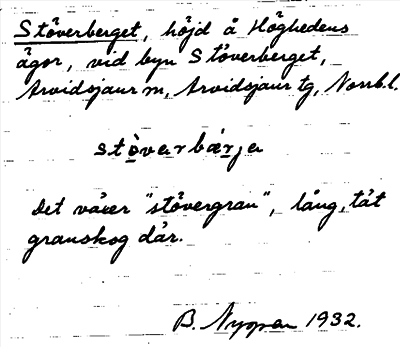 Stöverberget, höjd å Höghedens
ägor, vid byn Stöverberget,
Arvidsjaur m, Arvidsjaur tg, Norrb.l.
stö̀varbær̀ja
Det växer "stövergran", lång, tät
granskog där.
B. Nyman 1932.